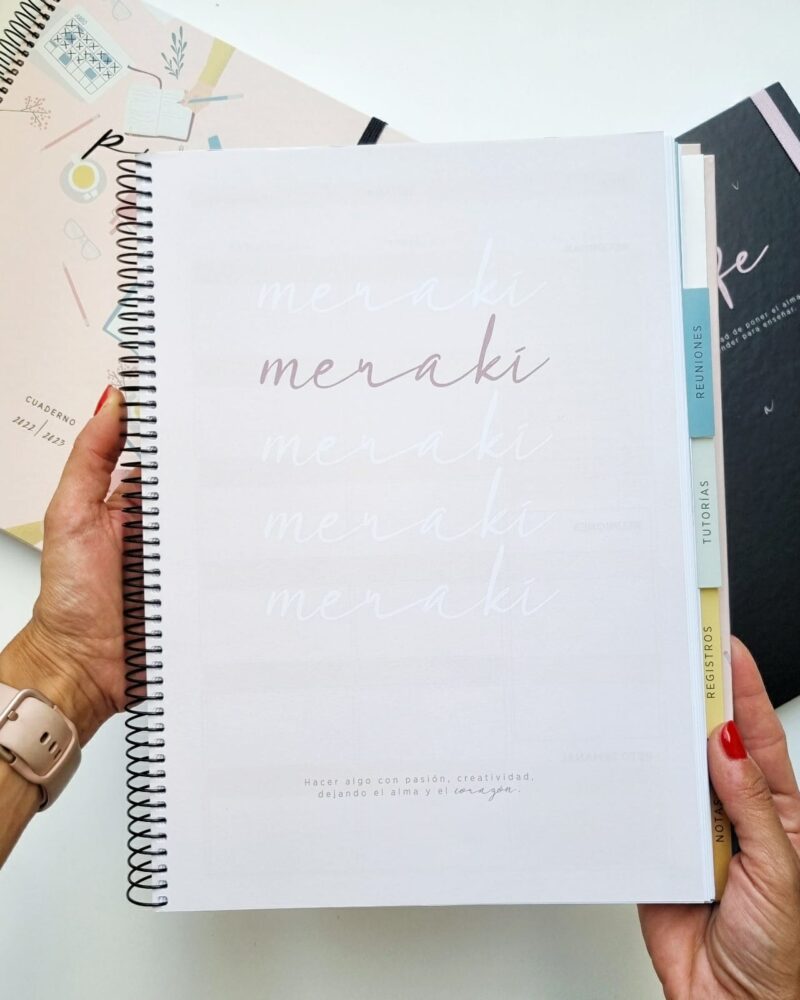 meraki
meraki
meraki
meraki
meraki
Hacer algo con pasión, creatividad,
dejando el alma y el corazón.
REUNIONES
TUTORÍAS
REGISTROS
NOTAS
CUADERNO
2022/2023
fe
ad de poner el alma
nder para enseñar.